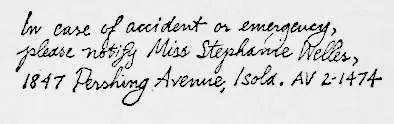 In case of accident or emergency,
please notify Miss Stephanie Welles,
1847 Pershing Avenue, Isola. AV 2-1474